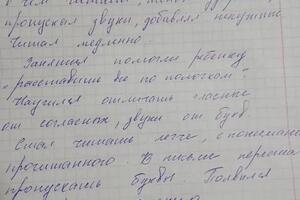 пропуская звуки, добавлял
Читал медленно.
Занятия помогли ребёнку
"расставить все по полочкам"
Научился отличать гласные
от согласных, звуки от букв
Стал читать легче, с пониманием
прочитанного. В письме перестал
пропускать буквы Появился